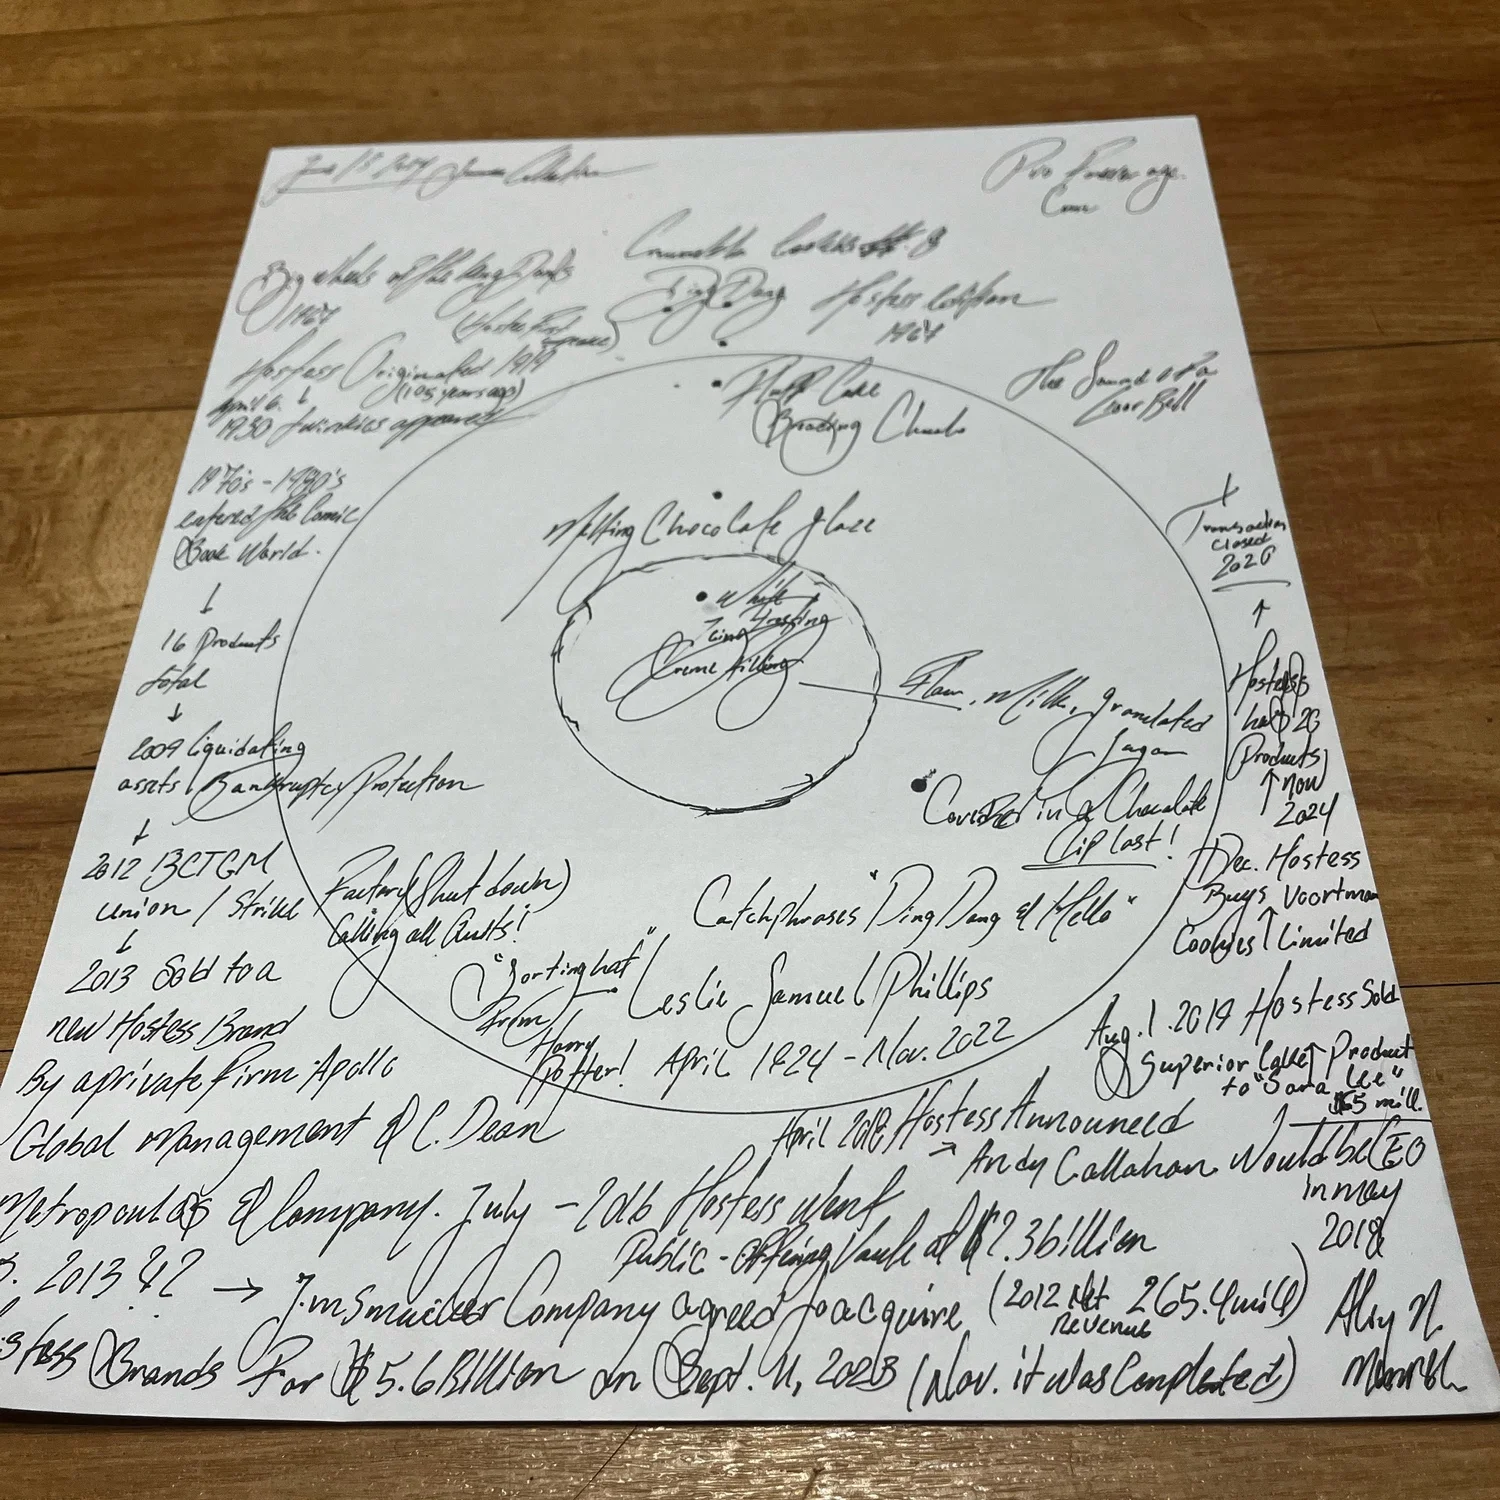 June 13 2024 Summer Collection
Crumble Cookies #. 8
Big wheels
Ding Dong
Hostess Edition
1967
1967
Hostess Originated 1919
(105 years ago)
April 6.
1930 Twinkies appeared
Fluff Cake
The Sound of a
Door Bell
1970's - 1980's
entered the Comic
Book World.
Melting Chocolate glaze
Transaction
closed
2020
White
Icing Frosting
Creme filling
16 Products
total
Flour, Milk, granulated
Sugar
Hostess
has 26
Products
now
2024
2009 liquidating
assets Bankruptcy Protection
Covered in a Chocolate
Dip last!
Dec. Hostess
Buys Voortman
Cookies Limited
2012 BCTGM
union / Strike
Factory (Shut down)
Calling all Aunts!
Catchphrases "Ding Dong & Hello"
2013 Sold to a
new Hostess Brand
By a private firm Apollo
Global Management & C. Dean
Metropoulos & Company.
"Sorting hat"
from
Harry
Potter!
Leslie Samuel Phillips
April 1924 - Nov. 2022
Aug. 1. 2019 Hostess Sold
Superior Cake Product
to "Sara Lee"
$65 mill.
April 2018 Hostess Announced
Andy Callahan Would be CEO
in may
2018
July - 2016 Hostess went
Public - Offering Value at $2.3 billion
2013
J.m Smucker Company agreed to acquire
(2012 Net 265.4 mill)
Revenue
Brands For $5.6 Billion on Sept. 11, 2023 (Nov. it was Completed)